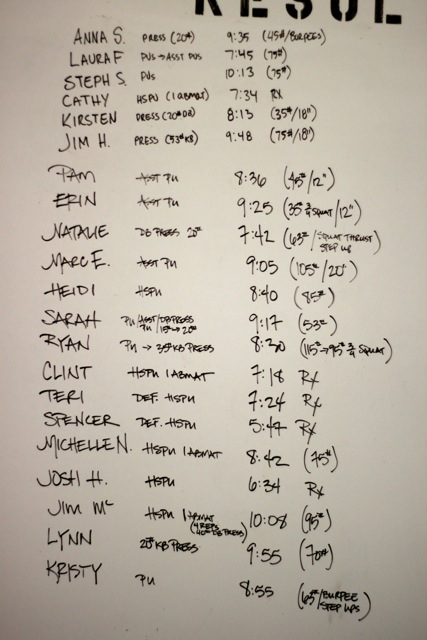 RESUL
ANNA S. PRESS (20#) 9:35 (45#/BURPEES)
LAURA F PUS → ASST PUS 7:45 (75#)
STEPH S. PUS 10:13 (75#)
CATHY HSPU (1 ABMAT) 7:34 RX
KIRSTEN PRESS (20# DB) 8:13 (35#/18")
JIM H. PRESS (53# KB) 9:48 (75#/18")
PAM ASST PU 8:36 (45#/12")
ERIN ASST PU 9:25 (35# 3/4 SQUAT/12")
NATALIE DB PRESS 20# 7:42 (63#/SQUAT THRUST
STEP UP)
MARC E. ASST PU 9:05 (105#/20")
HEIDI HSPU 8:40 (85#)
SARAH PU/ASST/DB PRESS 9:17 (53#)
PU/15# → 20#
RYAN PU → 35# KB PRESS 8:30 (115# → 95# 3/4 SQUAT)
CLINT HSPU 1 ABMAT 7:18 RX
TERI DEF. HSPU 7:24 RX
SPENCER DEF. HSPU 5:47 RX
MICHELLE N. HSPU 1 ABMAT 8:42 (75#)
JOSH H. HSPU 6:34 RX
JIM Mc HSPU 1 ABMAT 10:08 (95#)
(4 REPS
40# DB PRESS)
LYNN 20# KB PRESS 9:55 (70#)
KRISTY PU 8:55 (65#/BURPEE
STEP UPS)